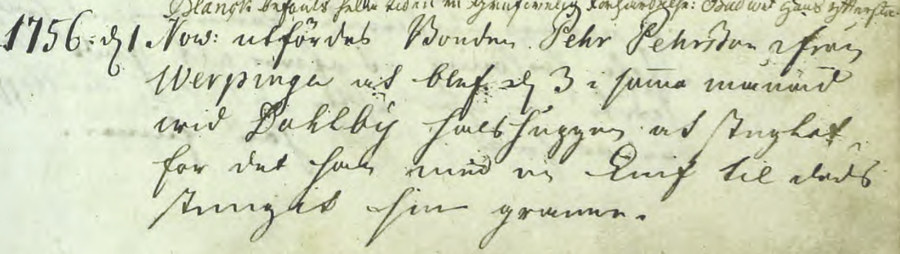 befants hela tiden en
1756: d 1 Nov: utfördes Bonden Pehr Pehrsson ifrån
Werpinge at blef d 3 i samma månad
wid Dahlby halshuggen at steglat
för det han med en Knif til döds
stungit sin granne.